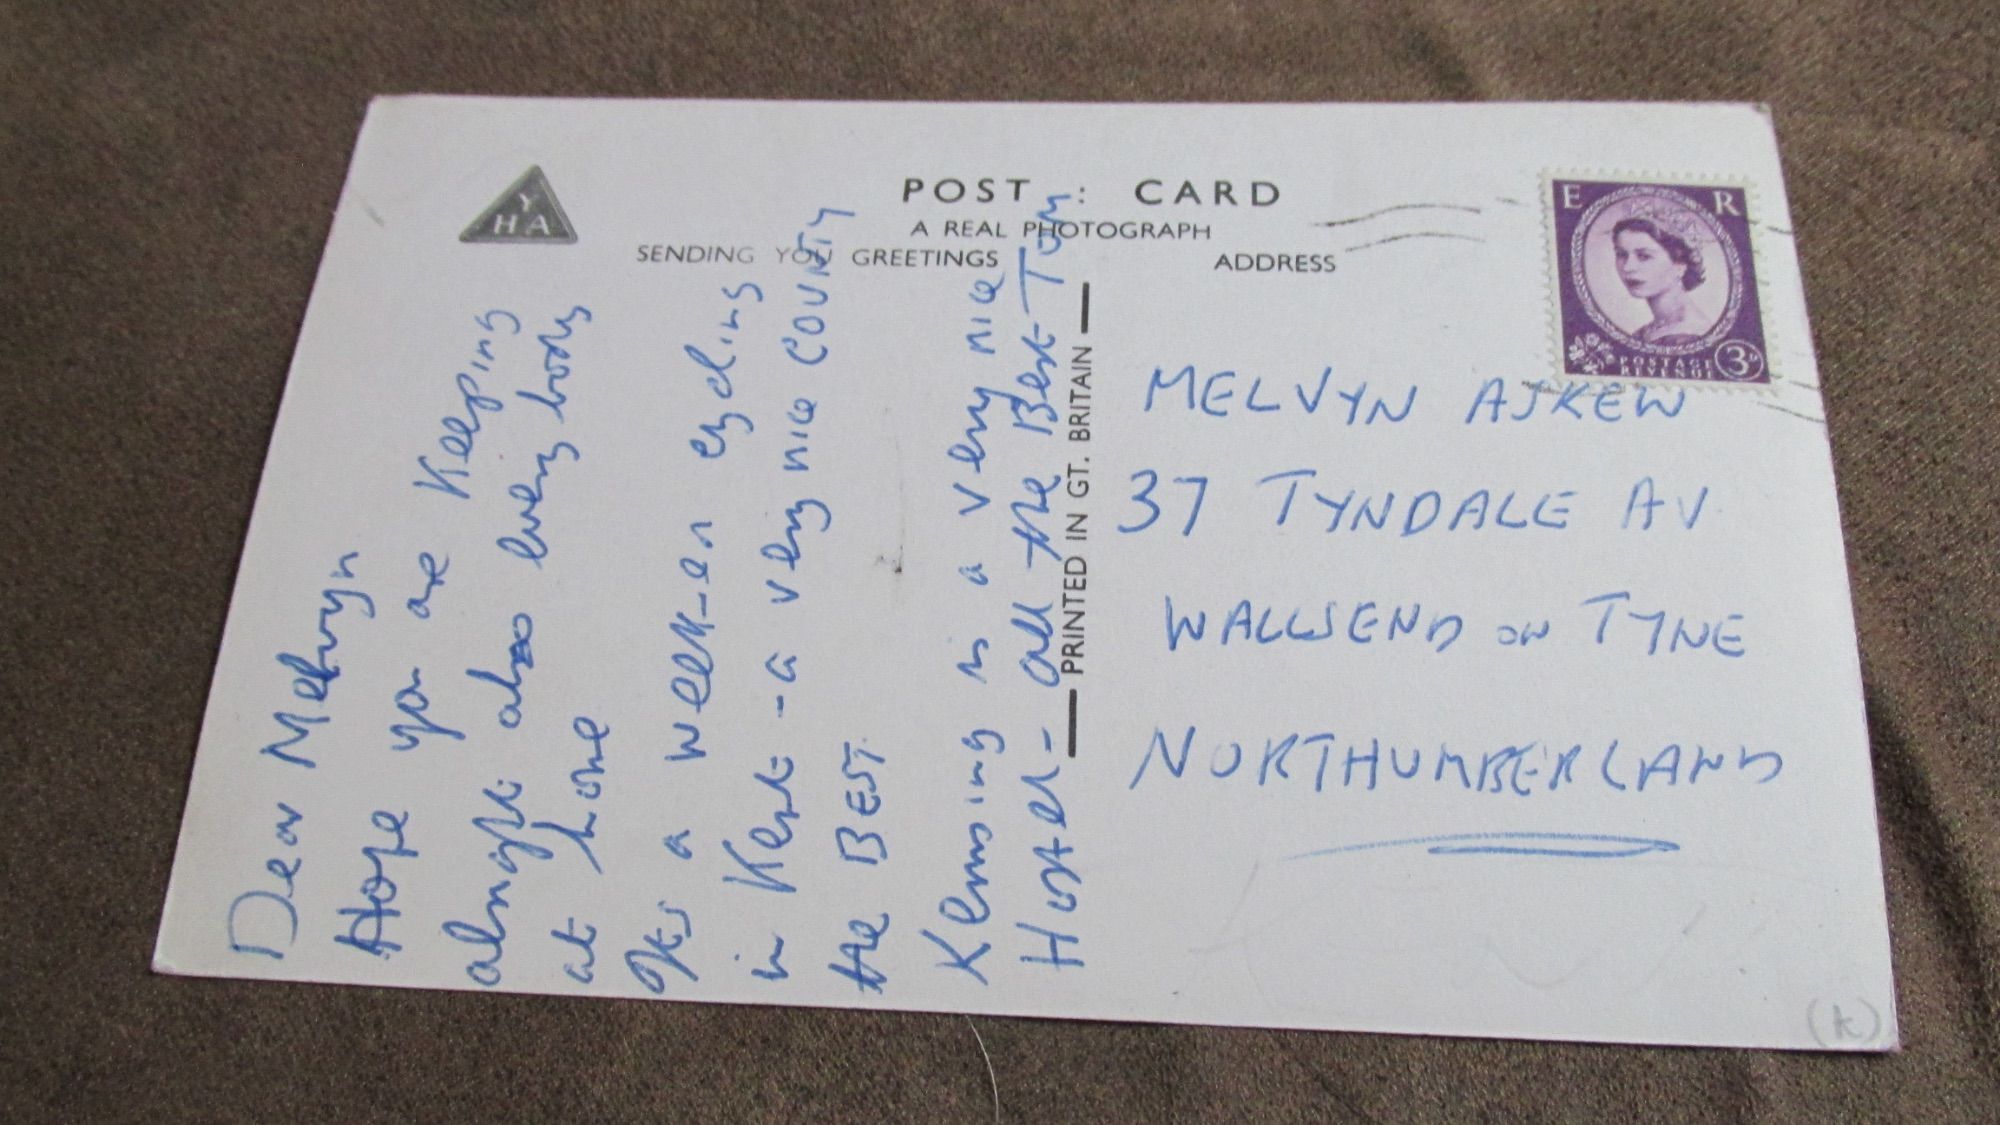 Y
H A
POST : CARD
A REAL PHOTOGRAPH
SENDING YOU GREETINGS
ADDRESS
Dear Melvyn
Hope you are Keeping
alright also everybody
at home
Its a week-en cycling
in Kent - a very nice COUNTY
the BEST.
Kemsing is a very nice
Hostel - all the Best Tom
PRINTED IN GT. BRITAIN
E R
POSTAGE
REVENUE
3D
MELVYN ASKEW
37 TYNDALE AV.
WALLSEND ON TYNE
NORTHUMBERLAND
(K)